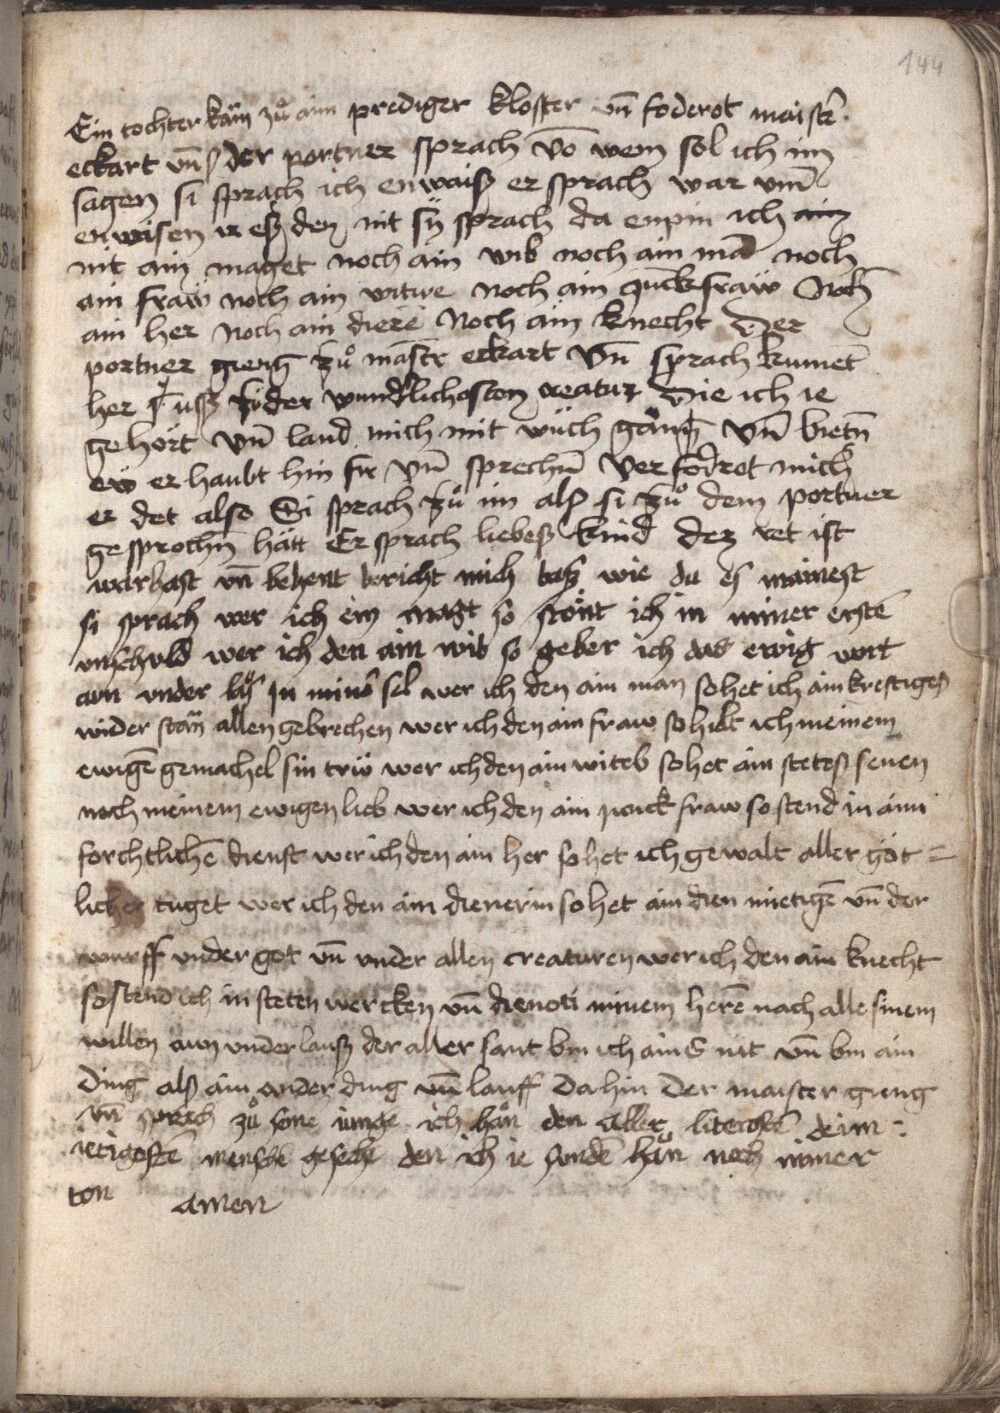 144
Ein tochter kam zuͦ aim prediger kloster vn̄ foderot maist̄
eckart vn̄ der portner sprach vō wem sol ich im
sagen si sprach ich enwaiß er sprach war vm̄
enwisen ir eß den nit sy sprach da enpin ich
nit ain maget noch ain wib noch ain mā noch
ain fraw noch ain witwe noch ain junckfraw Noch
ain her noch ain diere Noch ain knecht Der
portner gieng zuͦ maistr eckart vn̄ sprach kumet
her uſß zuͦ der wundˀlichosten creatur Die ich ie
gehört vn̄ land mich mit üch gang vn̄ bietn̄
ew er haubt hin für vn̄ sprechn̄ Wer fodrot mich
er det also Si sprach zuͦ im alß si zuͦ dem portner
gesprochn̄ hätt Er sprach liebeß kind dez ret ist
warhaft vn̄ behent bericht mich baß wie du es mainest
si sprach wer ich ein magt so stönt ich in miner erstē
vnschuld wer ich den ain wib so geber ich das ewig wort
aun vnder laß In minˀ sel wer ich den ain man so het ich ain kreftigeß
wider stan allen gebrechen wer ich den ain fraw so hielt ich meinem
ewigē gemachel sin trü wer ich den ain witeb so het ain steteß senen
noch meinem ewigen lieb wer ich den ain junckfraw so stend in aim
forchtlichē dienst wer ich den ain her so het ich gewalt aller göt=
licher tuget wer ich den ain dienerin so het ain dien mietigē vn̄der
wurff vnder got vn̄ vnder allen creaturen wer ich den ain knecht
so stend ich in steten wercken vn̄ dienoti minem herē nach alle sinem
willen aun vnderlauß der aller sant bin ich ains nit vn̄ bin ain
Ding alß ain ander ding vn̄ lauff da hin Der maister gieng
vn̄ sprach zuͦ sine iunge ich han den aller literostē
menschē gesechē den ich ie fundē han noch imer
ton amen